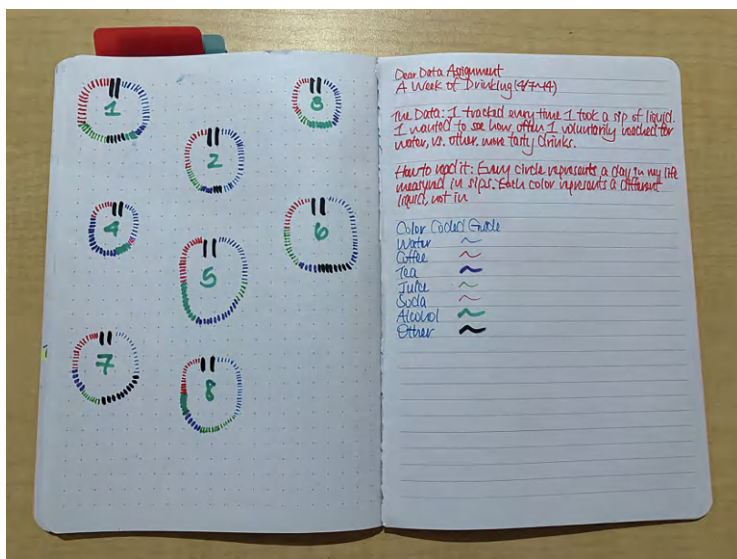 1
8
2
4
6
5
7
8
Dear Data Assignment
A Week of Drinking (4/7-14)
The Data: I tracked every time I took a sip of liquid.
I wanted to see how often I voluntarily reached for
water, vs. other, more tasty drinks.
How to read it: Every circle represents a day in my life
measured in sips. Each color represents a different
liquid, not in
Color Coded Guide
Water
Coffee
Tea
Juice
Soda
Alcohol
Other